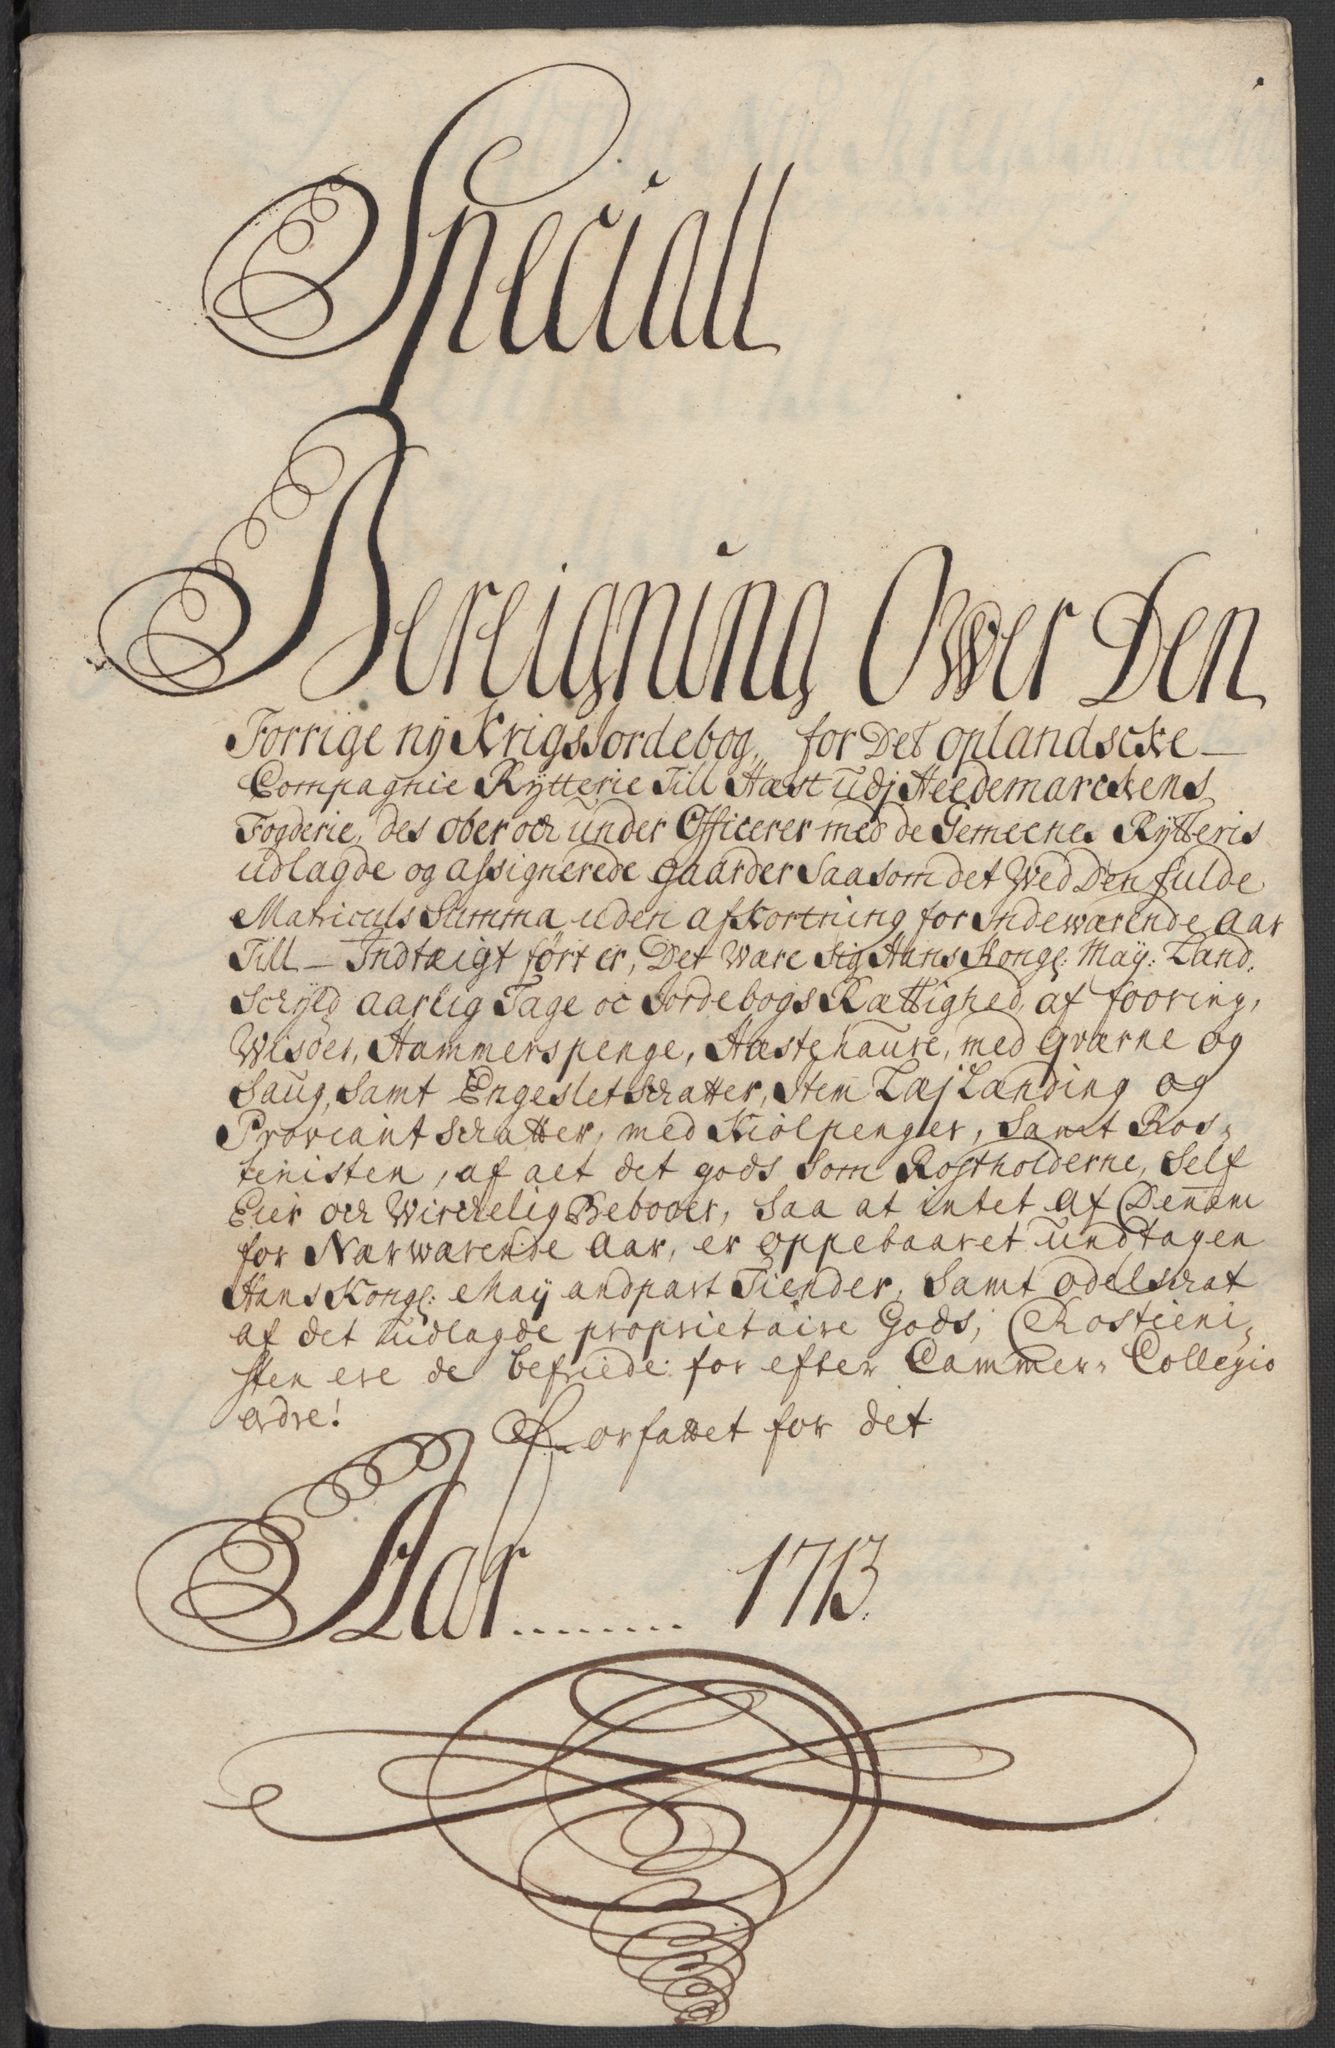 Speciall
Bereigning Ower Den
Forrige nÿ Krigs Jordebog, for Det oplandscke
Compagnie Rÿtterie Till Hæst udj Heedemarckens
Fogderie, des ober och under Officerer med de Gemeenes Rÿtteris
udlagde og assignerede gaarder Saasom det Wed Den fulde
Matriculs Summa uden afkortning for Indewærende aar
Till Indtæigt ført er, Det Wære Sig Hans Kongl: Maÿ: Land,
Schÿld aarlig Tage oc Jordebogs Rættighed, af fooring,
Wisøer, Hammerspenge, Hæstehaure, med Qværne og
Saug, Samt Engeslet Schatter, Item Læj Lænding og
Proviant Schatter, med Kiølpenger, Samt Ros-
tienisten, af alt det gods Som Rostholderne, Self
Eier och Wirchelig Beboer, Saa at intet af Dennem
for Nærwærende Aar, er oppebaaret undtagen
Hans Kongl: Maÿ andpart Tiender, Samt odelschat
af det udlagde proprietaire Gods, Rostieni-
sten ere de befriede for efter Cammer- Collegio
ordre!
Forfattet for det
Aar ........ 1713.